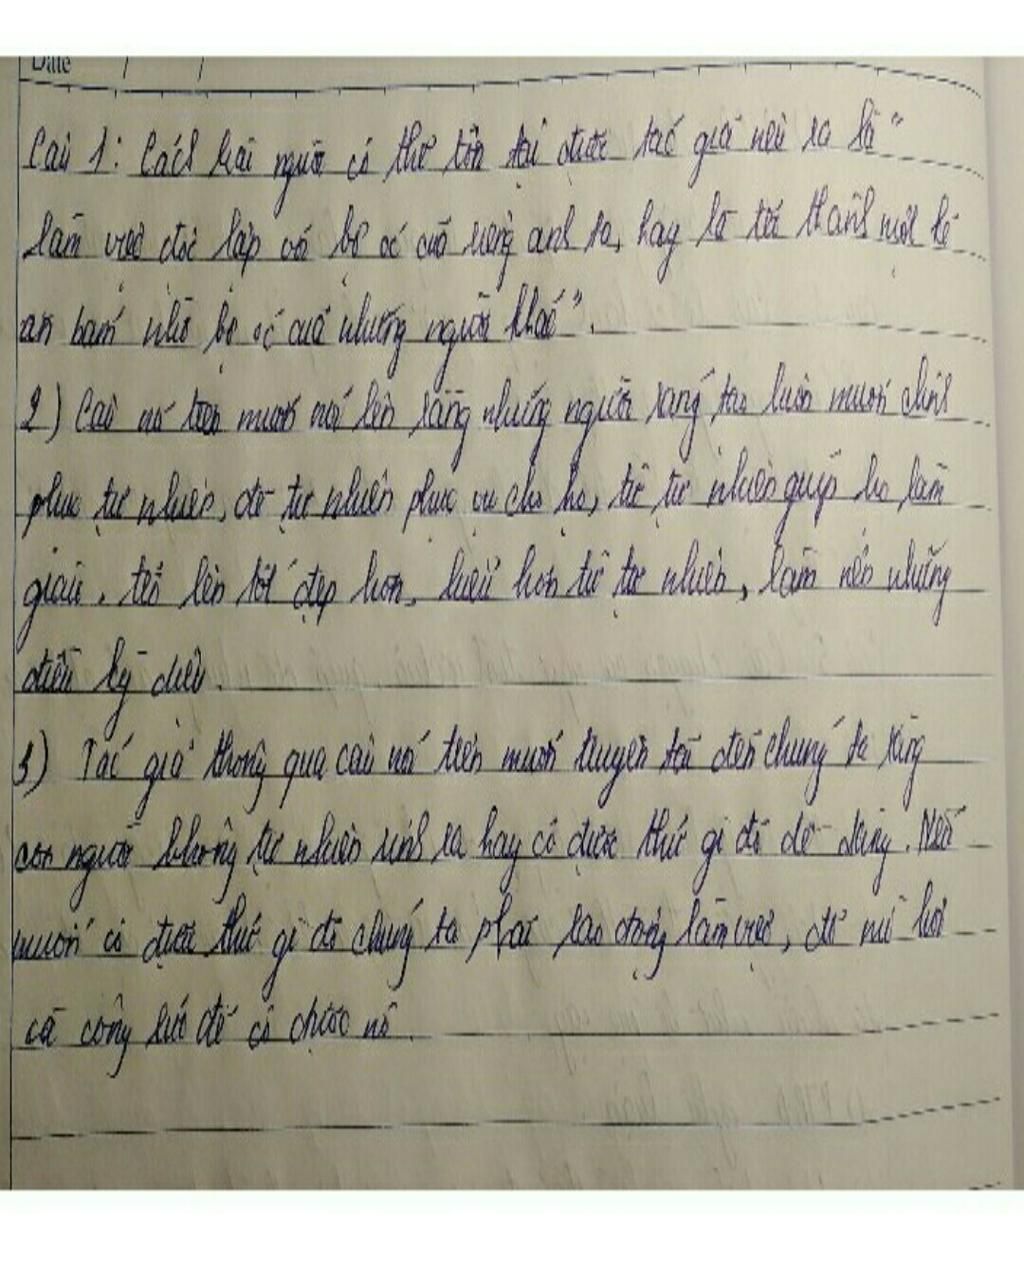 Date / /
Câu 1: Cách loài người có thể tồn tại được tác giả nêu ra là "
làm việc độc lập với bộ óc của riêng anh ta, hay là trở thành một kẻ
ăn bám nhờ bộ óc của những người khác".
2) Câu nói trên muốn nói lên rằng những người sáng tạo luôn muốn chinh
phục tự nhiên, để tự nhiên phục vụ cho họ, từ tự nhiên giúp họ làm
giàu, trở lên tốt đẹp hơn, hiểu hơn từ tự nhiên, làm nên những
điều kỳ diệu.
3) Tác giả thông qua câu nói trên muốn truyền tải đến chúng ta rằng
con người không tự nhiên sinh ra hay có được thứ gì đó dễ dàng. Nếu
muốn có được thứ gì đó chúng ta phải lao động làm việc, đổ mồ hôi
cả công sức để có được nó.